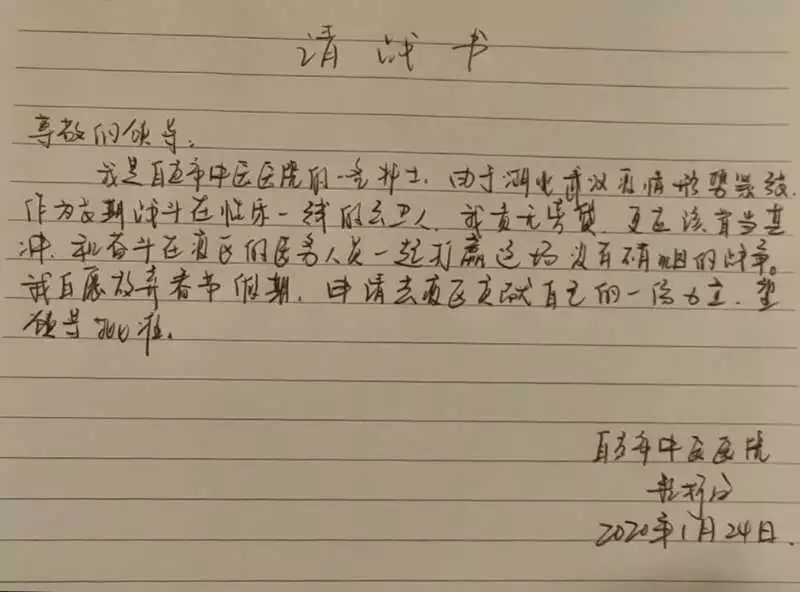 请战书
尊敬的领导:
我是自贡市中医医院的一名护士,由于湖北武汉疫情形势紧张,
作为长期战斗在临床一线的医卫人,我责无旁贷,更应该首当其
冲,和奋斗在疫区的医务人员一起打赢这场没有硝烟的战争。
我自愿放弃春节假期,申请去疫区贡献自己的一份力量,望
领导批准。
自贡市中医医院
2020年1月24日.